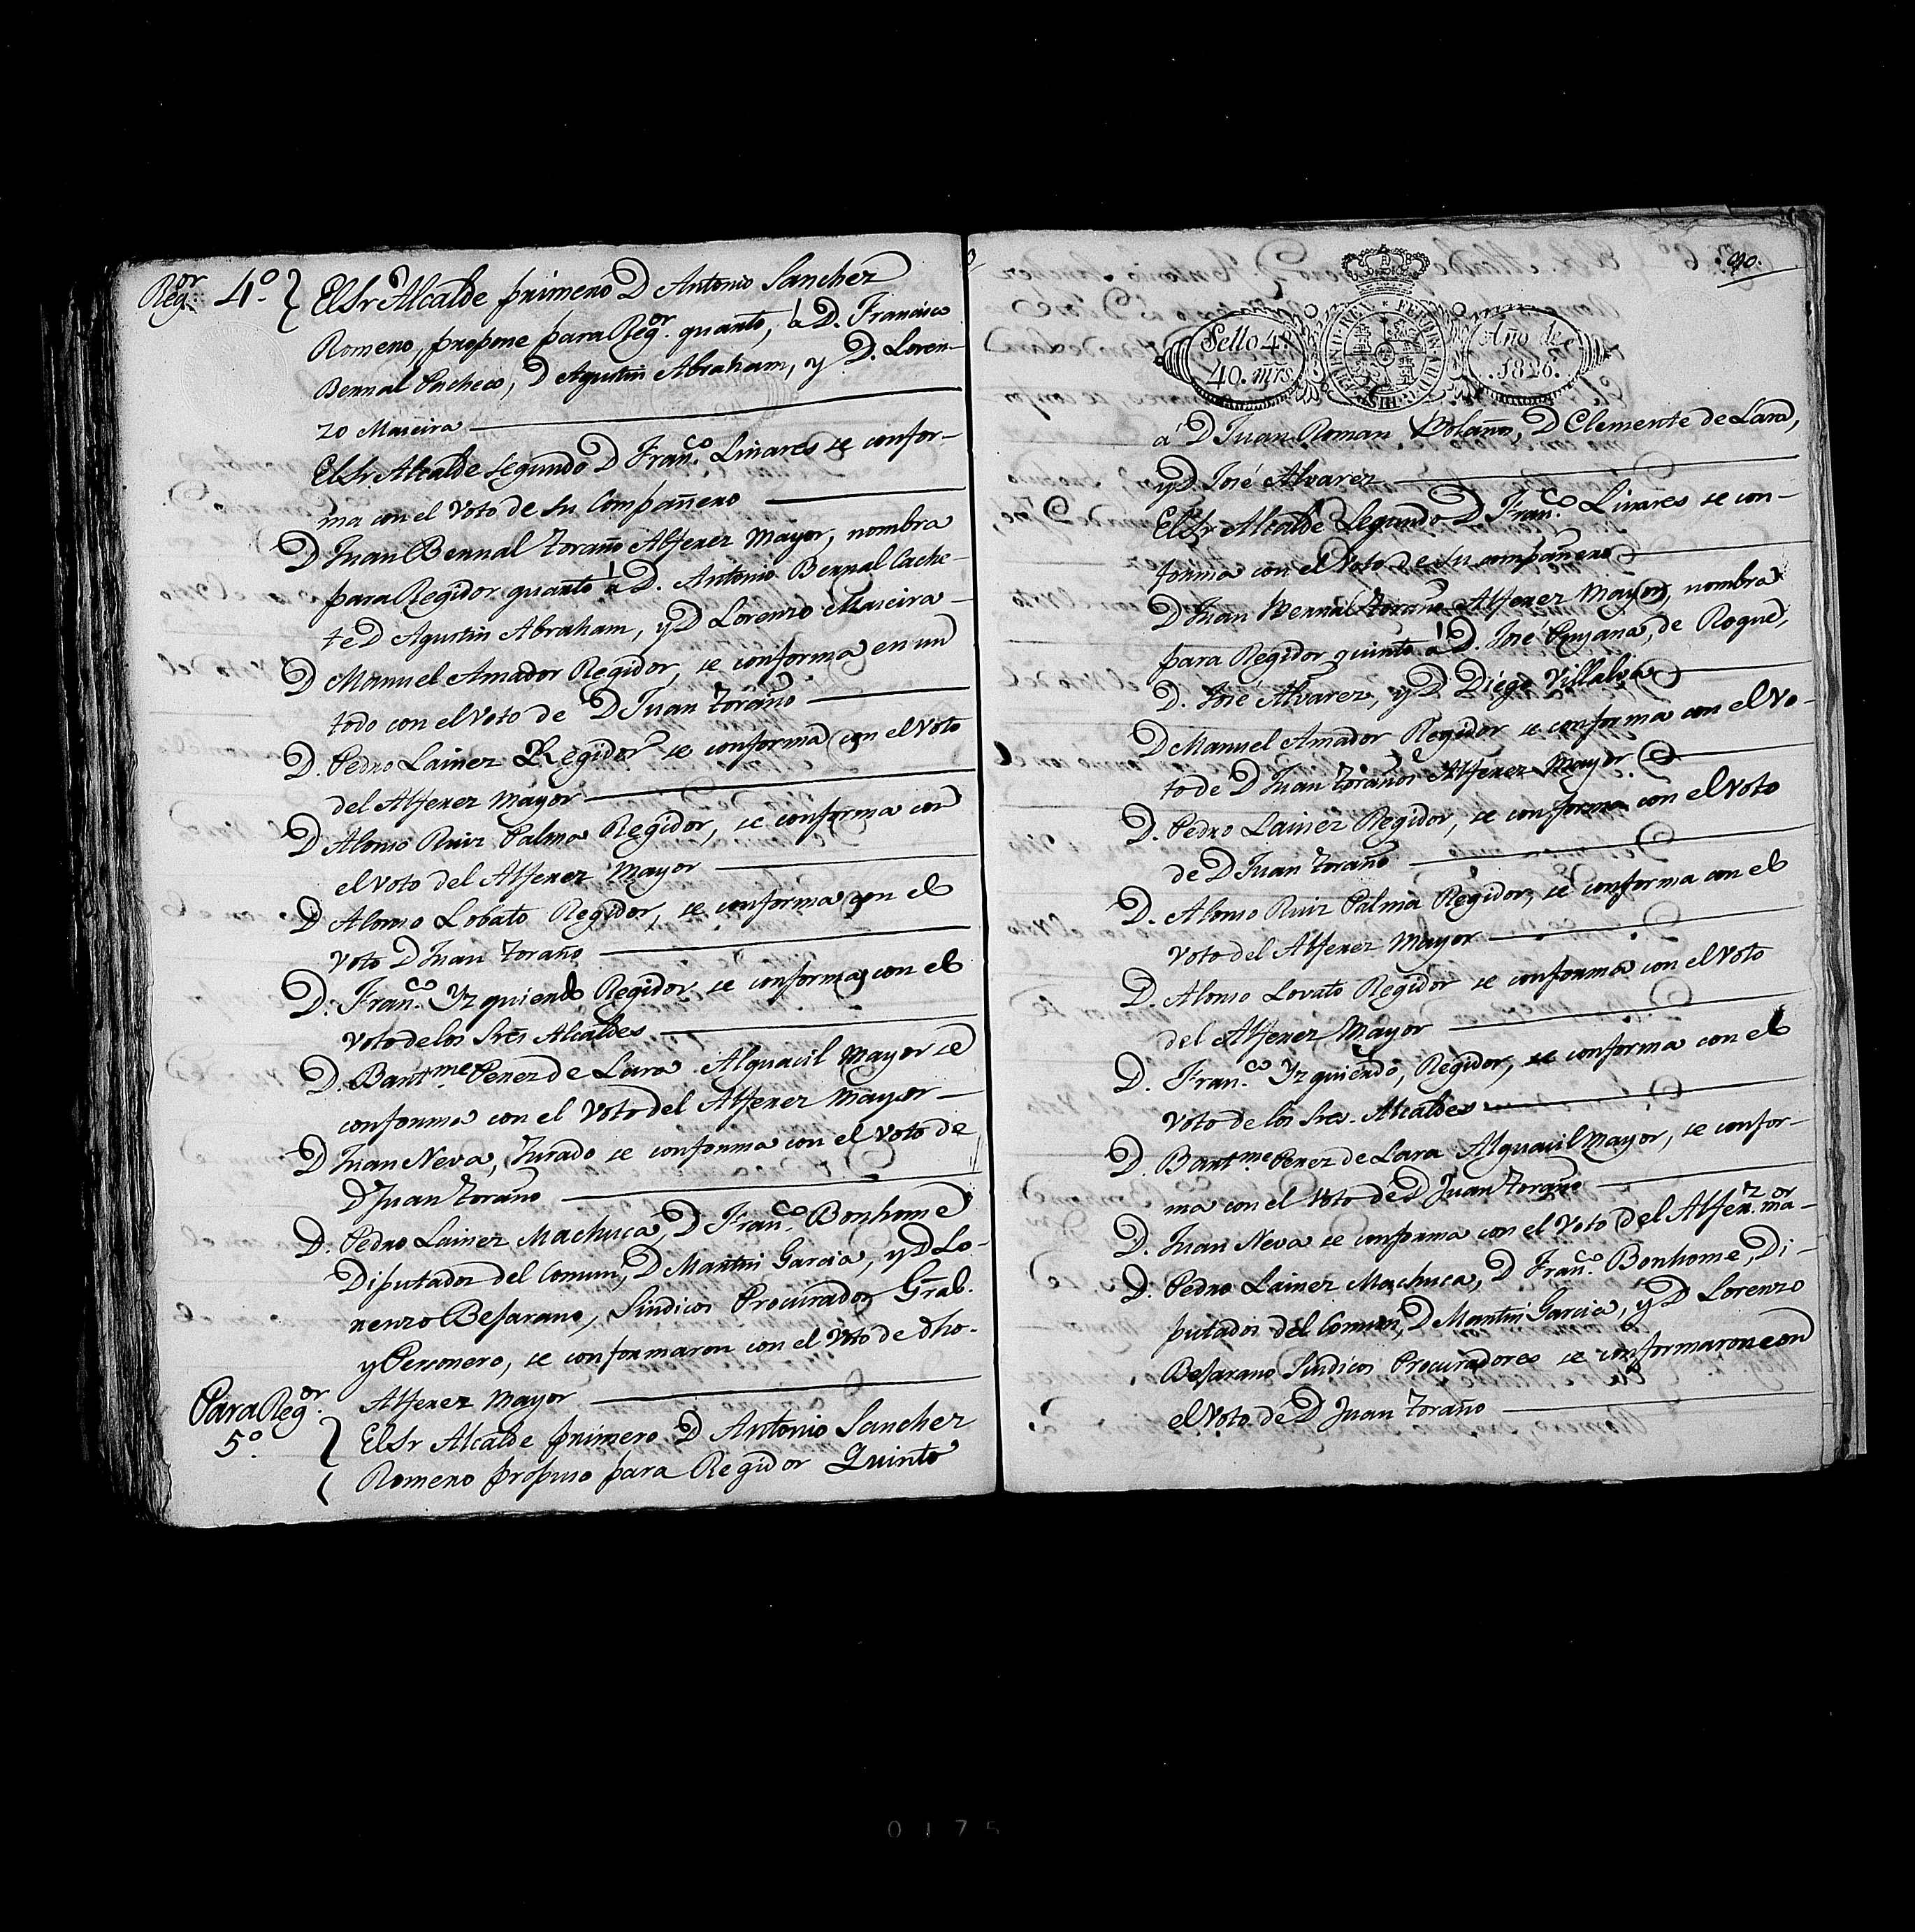 Regor. 4º
El Sr Alcalde primero D Antonio Sanchez
Romero, propone para Regor. quarto, á D. Francisco
Bernal Pacheco, D Agustin Abraham, y D. Loren-
zo Maseira
El Sr Alcalde segundo D Franco. Linares se confor-
ma con el Voto de su Compañero
D Juan Bernal Zoraño Alferez Mayor, nombra
para Regidor quarto á D. Antonio Bernal Cache-
te D Agustin Abraham, y D Lorenzo Maseira
D Manuel Amador Regidor, se conforma en un
todo con el voto de D Juan Zoraño
D. Pedro Lainez Regidor se conforma con el Voto
del Alferez Mayor
D Alonso Ruiz Palma Regidor, se conforma con
el voto del Alferez Mayor
D Alonso Lobato Regidor, se conforma con el
voto D Juan Zoraño
D. Franco. Yzquierdo Regidor se conforma con el
Voto de los Sres Alcaldes
D. Bartme. Perez de Lara Alguacil Mayor se
conforma con el Voto del Alferez Mayor
D Juan Neva, Jurado se conforma con el voto de
D Juan Zoraño
D. Pedro Lainez Machuca, D Franco. Bonhome
Diputados del Comun, D Martin Garcia, y D Lo-
renzo Bejarano, Sindicos Procurador Gral.
y Personero, se conformaron con el Voto de dho.
Alferez Mayor
Para Regor.
5º.
El Sr Alcalde primero D Antonio Sanchez
Romero propuso para Regidor Quinto
590.
Sello 4º
40. mrs
HISP. ET IND. REX FERDIN. VII. D. G.
Año de
1826.
á D Juan Roman Bolaños, D Clemente de Lara,
y D José Alvarez
El Sr Alcalde Segundo D Franco. Linares se con-
forma con el Voto de su compañero
D Juan Bernal Zoraño Alferez Mayor, nombra
para Regidor quinto á D. José Puyana, de Roque,
D. José Alvarez, y D Diego Villalva
D Manuel Amador Regidor se conforma con el Vo-
to de D Juan Zoraños Alferez Mayor
D. Pedro Lainez Regidor, se conforma con el Voto
de D Juan Zoraño
D. Alonso Ruiz Palma Regidor, se conforma con el
Voto del Alferez Mayor
D. Alonso Lovato Regidor se conforma con el Voto
del Alferez Mayor
D. Franco. Yzquierdo, Regidor, se conforma con el
Voto de los Sres. Alcaldes
D. Bartme. Perez de Lara Alguacil Mayor, se confor-
ma con el Voto de D Juan Zoraño
D. Juan Neva se conforma con el Voto del Alferz. maor
D. Pedro Lainez Machuca, D Franco. Bonhome, Di-
putados del Comun, D Martin Garcia, y D Lorenzo
Bejarano Sindicos Procuradores se conformaron con
el Voto de D Juan Zoraño
0175